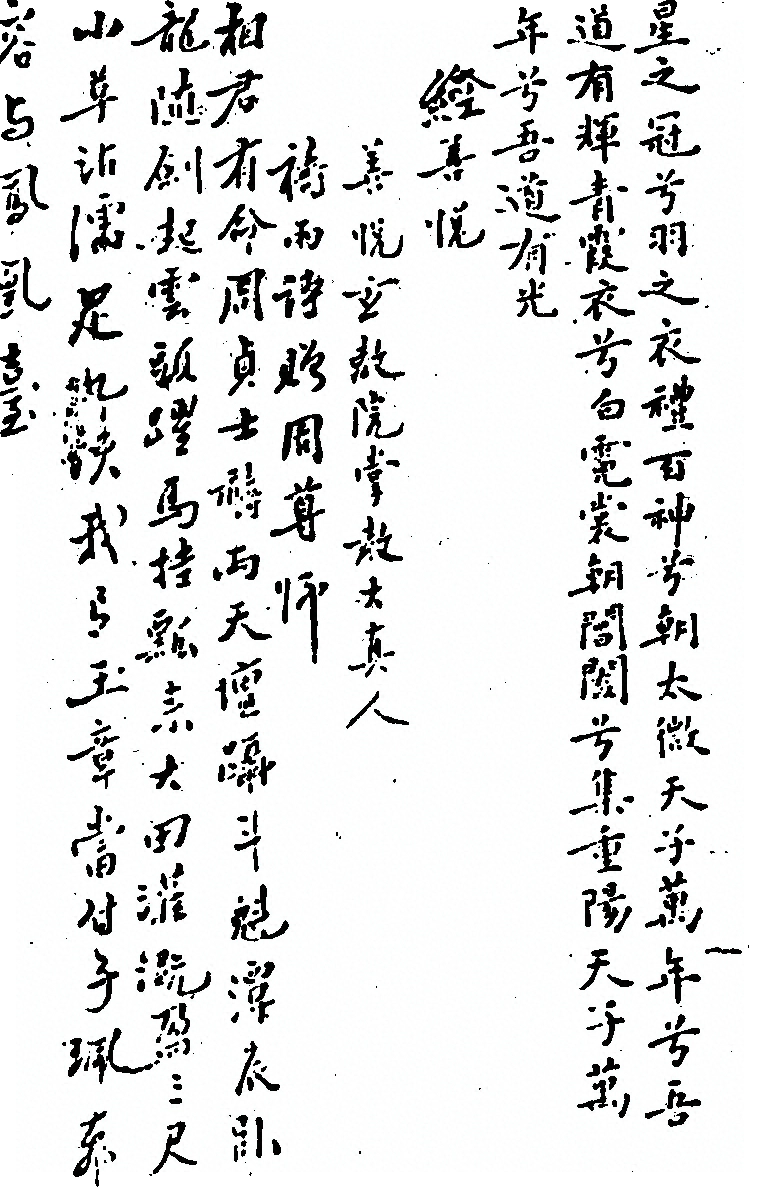 星之冠兮羽之衣禮百神兮朝太微天子萬年兮吾
道有輝青霞衣兮白霓裳朝閶闔兮集重陽天子萬
年兮吾道有光
善悅
善悅玄教院掌教大真人
禱雨詩贈周尊師
相君有命周貞士禱雨天壇躡斗魁潭底臥
龍隨劍起雲頭躍馬挂瓢來大田灌溉盈三尺
小草沾濡足我玉章當付子珮
容與鳳凰臺